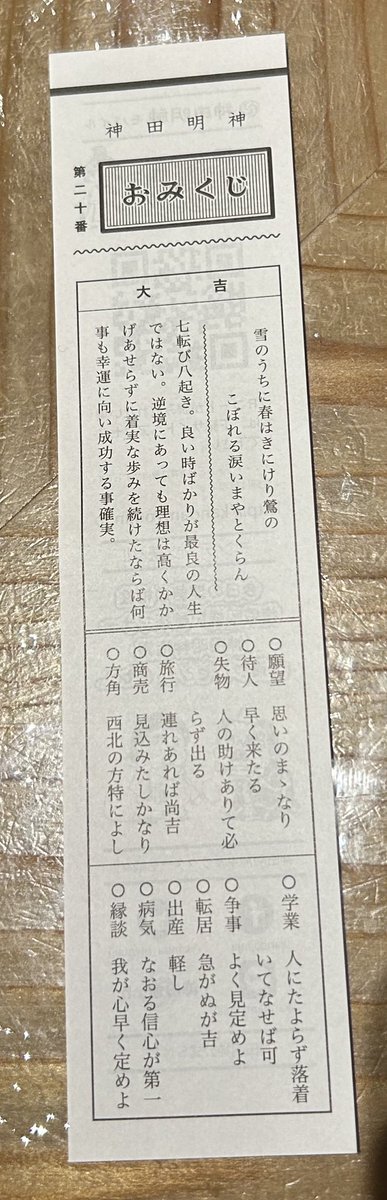 神田明神
第二十番
おみくじ
大吉
雪のうちに春はきにけり鶯の
こぼれる涙いまやとくらん
七転び八起き。良い時ばかりが最良の人生
ではない。逆境にあっても理想は高くかか
げあせらずに着実な歩みを続けたならば何
事も幸運に向い成功する事確実。
○願望 思いのまゝなり
○待人 早く来たる
○失物 人の助けありて必
らず出る
○旅行 連れあれば尚吉
○商売 見込みたしかなり
○方角 西北の方特によし
○学業 人にたよらず落着
いてなせば可
○争事 よく見定めよ
○転居 急がぬが吉
○出産 軽し
○病気 なおる信心が第一
○縁談 我が心早く定めよ